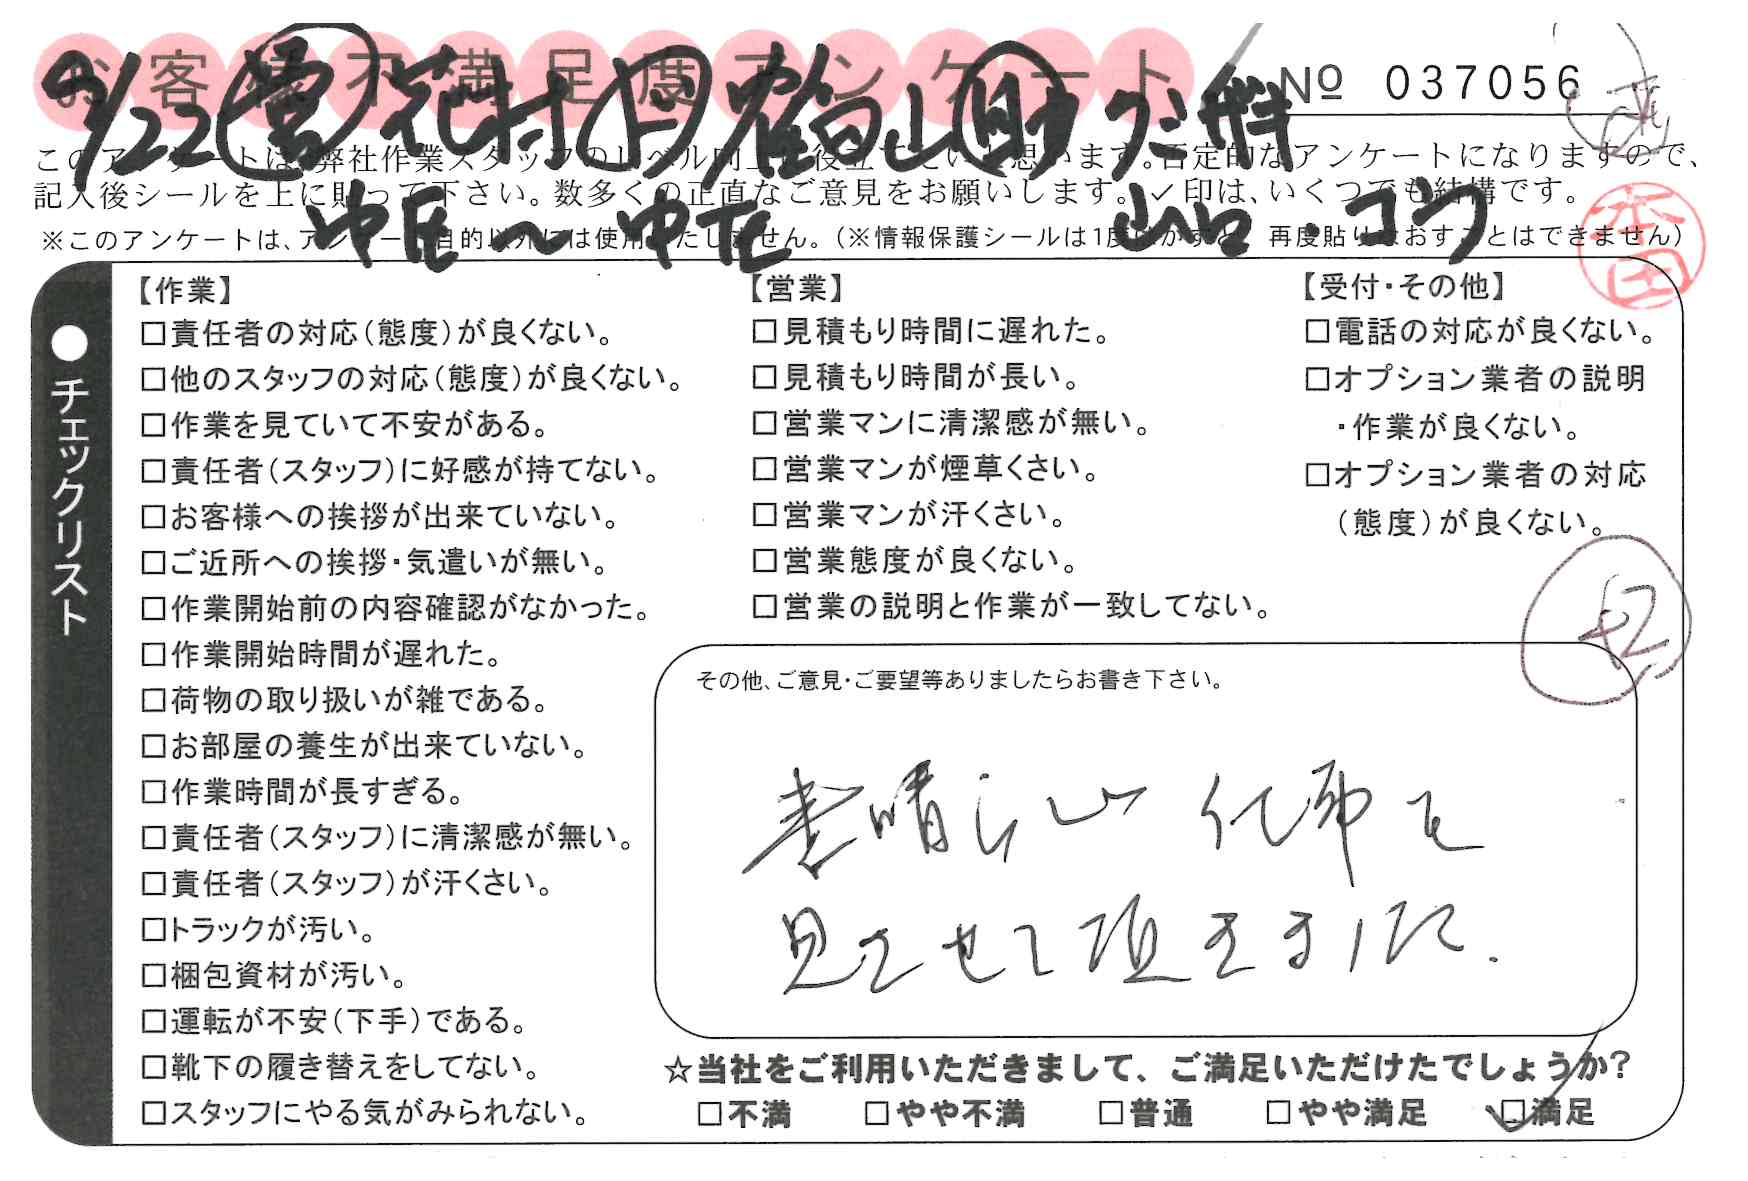 お客様不満足度アンケート
№ 037056
9/22
このアンケートは、弊社作業スタッフのレベル向上に役立てたいと思います。否定的なアンケートになりますので、
記入後シールを上に貼って下さい。数多くの正直なご意見をお願いします。✓印は、いくつでも結構です。
中区〜中区 山口・コウ
※このアンケートは、アンケート目的以外には使用いたしません。(※情報保護シールは1度はがすと、再度貼りなおすことはできません)
本田
●チェックリスト
【作業】
□責任者の対応(態度)が良くない。
□他のスタッフの対応(態度)が良くない。
□作業を見ていて不安がある。
□責任者(スタッフ)に好感が持てない。
□お客様への挨拶が出来ていない。
□ご近所への挨拶・気遣いが無い。
□作業開始前の内容確認がなかった。
□作業開始時間が遅れた。
□荷物の取り扱いが雑である。
□お部屋の養生が出来ていない。
□作業時間が長すぎる。
□責任者(スタッフ)に清潔感が無い。
□責任者(スタッフ)が汗くさい。
□トラックが汚い。
□梱包資材が汚い。
□運転が不安(下手)である。
□靴下の履き替えをしてない。
□スタッフにやる気がみられない。
【営業】
□見積もり時間に遅れた。
□見積もり時間が長い。
□営業マンに清潔感が無い。
□営業マンが煙草くさい。
□営業マンが汗くさい。
□営業態度が良くない。
□営業の説明と作業が一致してない。
【受付・その他】
□電話の対応が良くない。
□オプション業者の説明
・作業が良くない。
□オプション業者の対応
(態度)が良くない。
その他、ご意見・ご要望等ありましたらお書き下さい。
素晴らしい仕事を
見させて頂きました.
☆当社をご利用いただきまして、ご満足いただけたでしょうか?
□不満 □やや不満 □普通 □やや満足 ☑満足